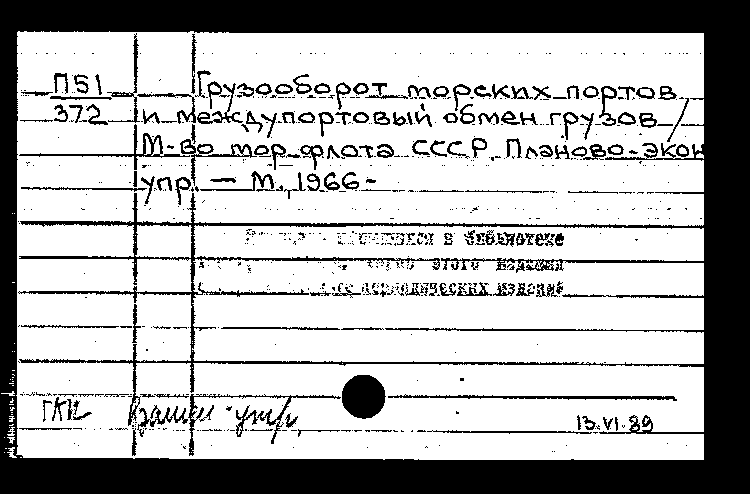 П51
372
Грузооборот морских портов
и междупортовый обмен грузов /
М-во мор. флота СССР. Планово-экон
упр. — М., 1966-
в библиотеке
этого издания
периодических изданий
ГКИ
13.VI.89